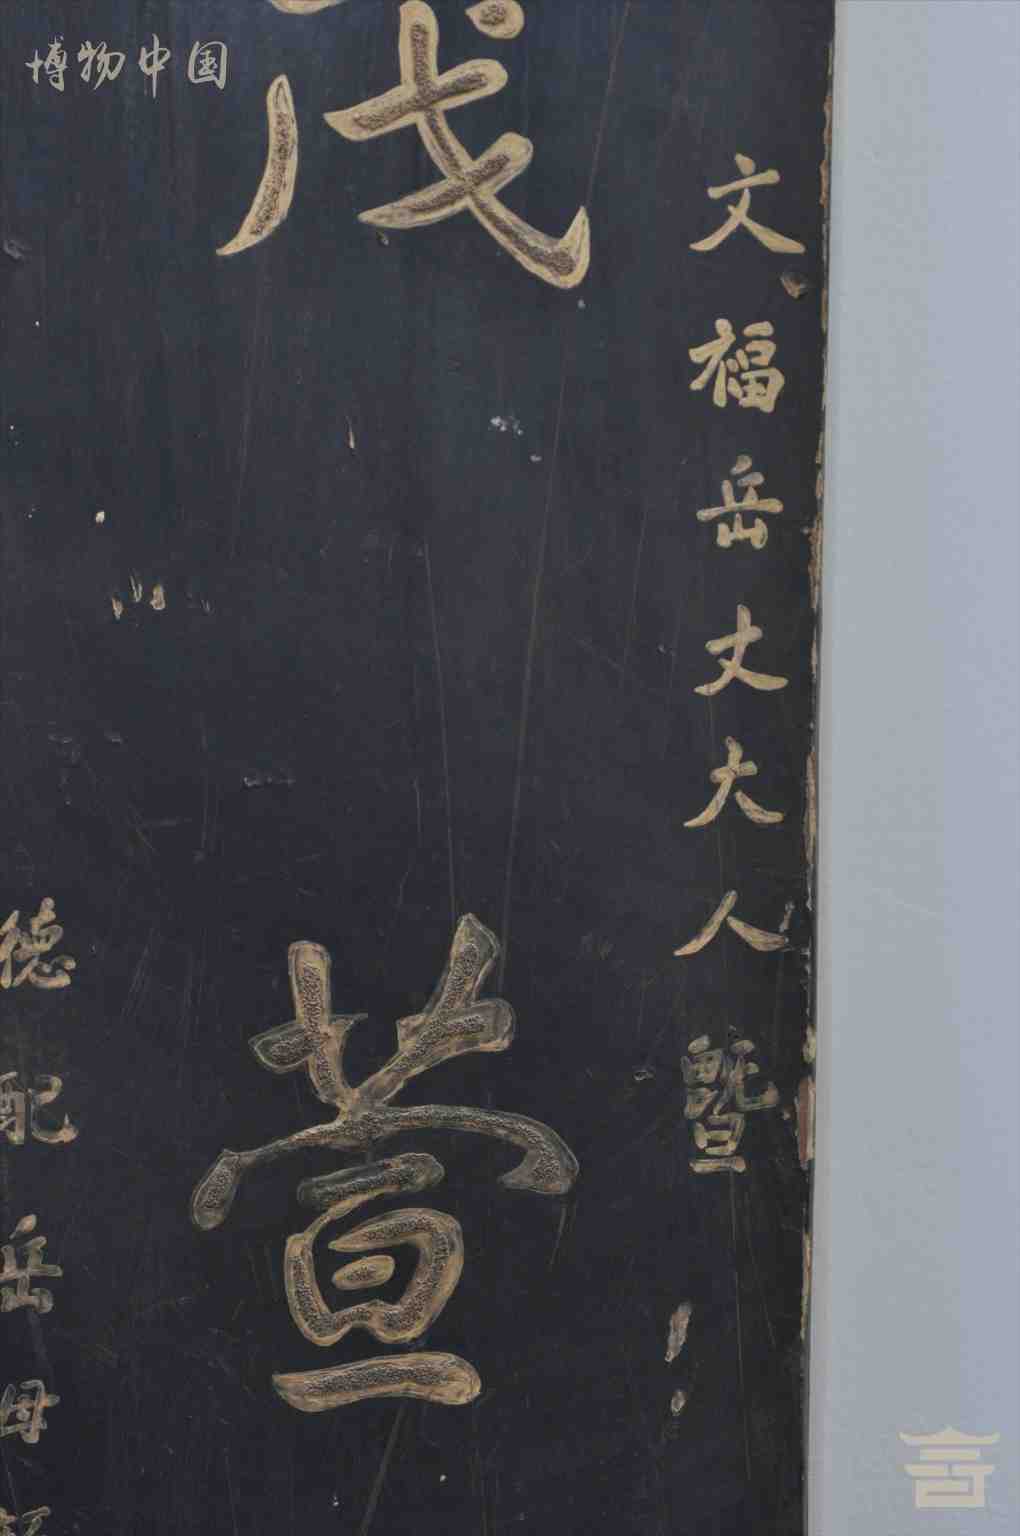 博物中国
文福岳丈大人暨
茂萱
德配岳母